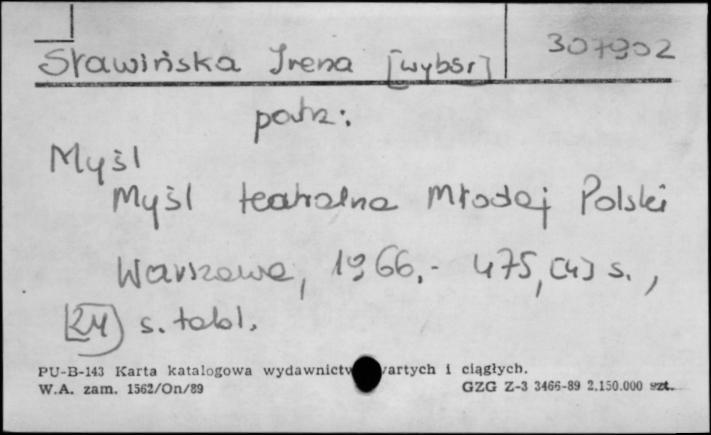 Sławińska Irena [wybór] 307902
patrz:
Myśl
Myśl teatralna Młodej Polski
Warszawa, 1966.- 475, [4] s.,
[24] s. tabl.
PU-B-143 Karta katalogowa wydawnictw zwartych i ciągłych.
W.A. zam. 1562/On/89 GZG Z-3 3466-89 2.150.000 szt.